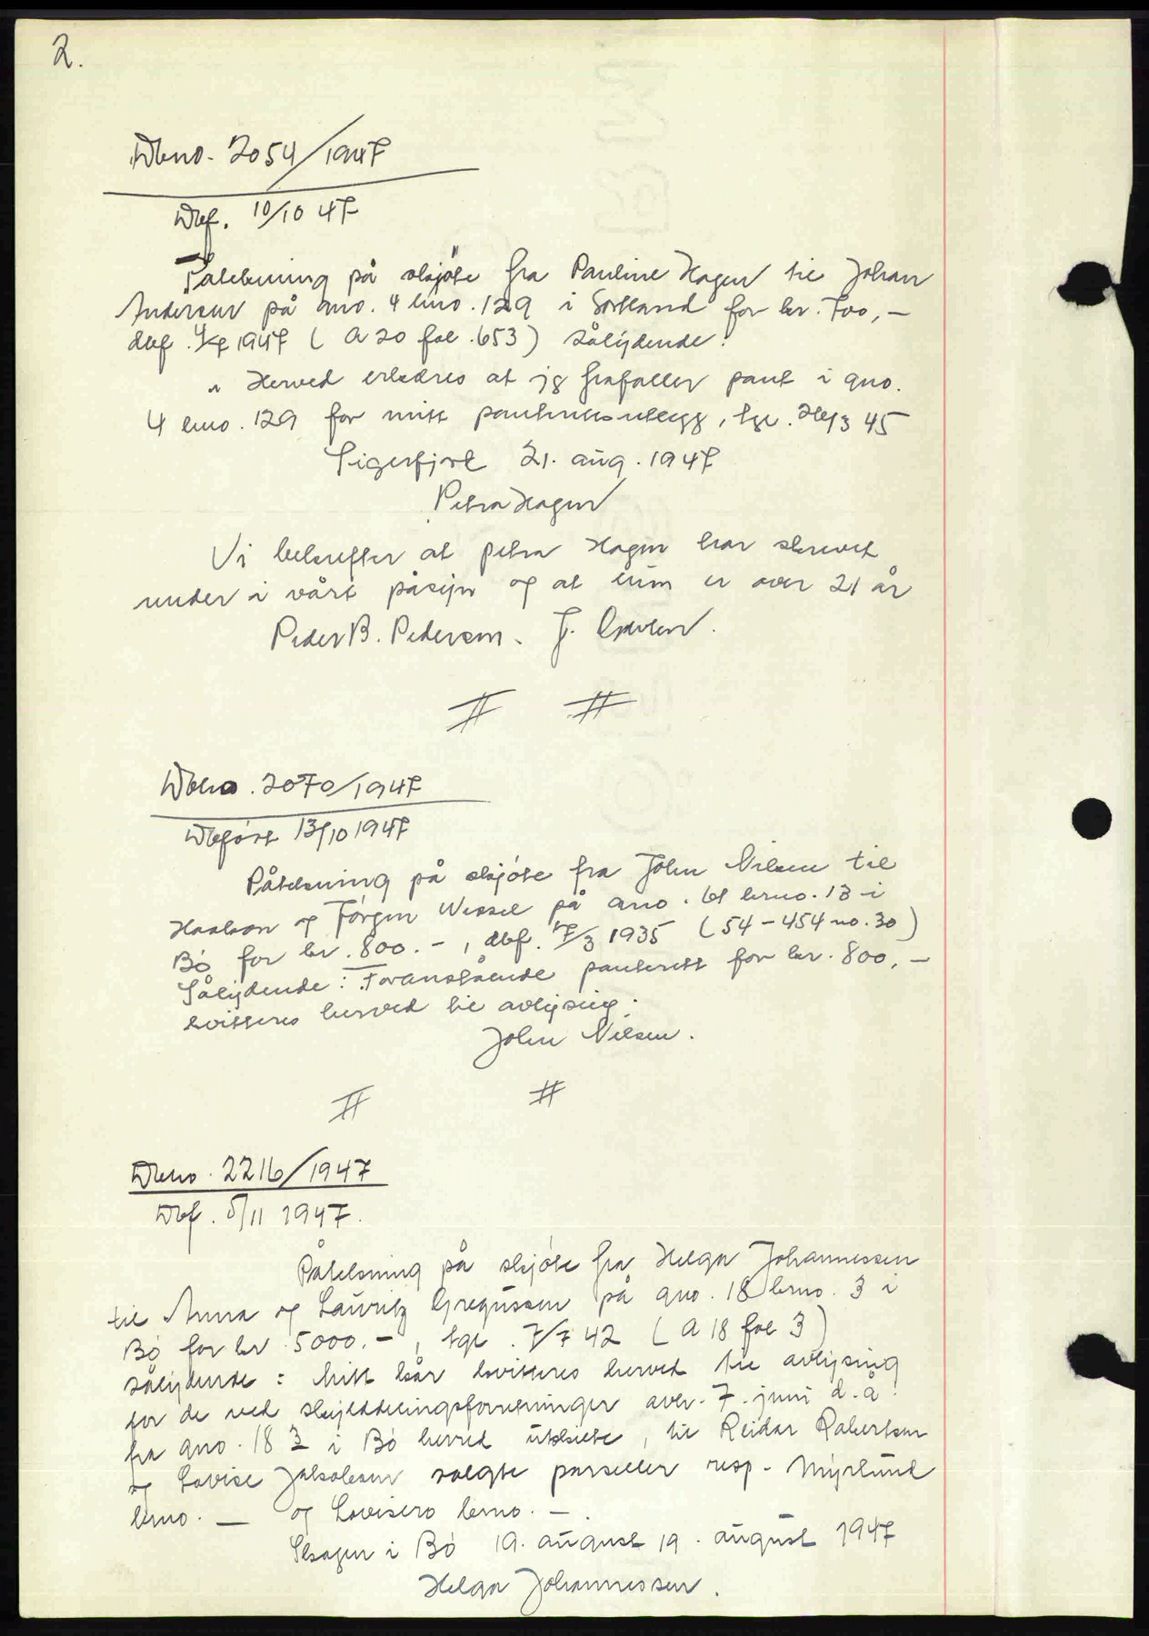 2.
Dbno. 2054/1947
Dbf. 10/10 47
Påtekning på skjöte fra Pauline Hagen til Johan
Andersen på gno. 4 bno. 129 i Sortland for kr. 700,-
dbf. 1947 ( A 20 fol. 653) sålydende:
" Herved erklæres at jeg frafaller pant i gno.
4 bno. 129 for mitt utlegg, tgl. 45
Sigerfjord 21. aug. 1947
Petra Hagen
Vi bekrefter at Petra Hagen har skrevet
under i vårt påsyn og at hun er over 21 år
Peder B. Pedersen. J.
# #
Dbno. 2070/1947
Dbfört 13/10 1947
Påtekning på skjöte fra John Nilsen til
Haakon og Jörgen Wessel på gno. bno. 13 i
Bö for kr. 800.-, dbf. 7/3 1935 (54-454 no. 30)
Sålydende: Foranstående panterett for kr. 800,-
kvitteres herved til avlysing.
John Nilsen.
# #
Dbno. 2216/1947
Dbf. 5/11 1947.
Påtekning på skjöte fra Helga Johannessen
til Anna og Lauritz Gregussen på gno. 18 bno. 3 i
Bö for kr 5000.-, tgl. 7/7 42 ( A 18 fol 3)
sålydende: Mitt kår kvitteres herved til avlysing
for de ved skylddelingsforretninger av 7. juni d. å.
fra gno. 18 3 i Bö herred utskilte, til Reidar Robertsen
og Lovise Jakobsen solgte parseller resp. Myrlund
bno. — og Lovisero bno. —.
Skagen i Bö 19. august 19. august 1947
Helga Johannessen.